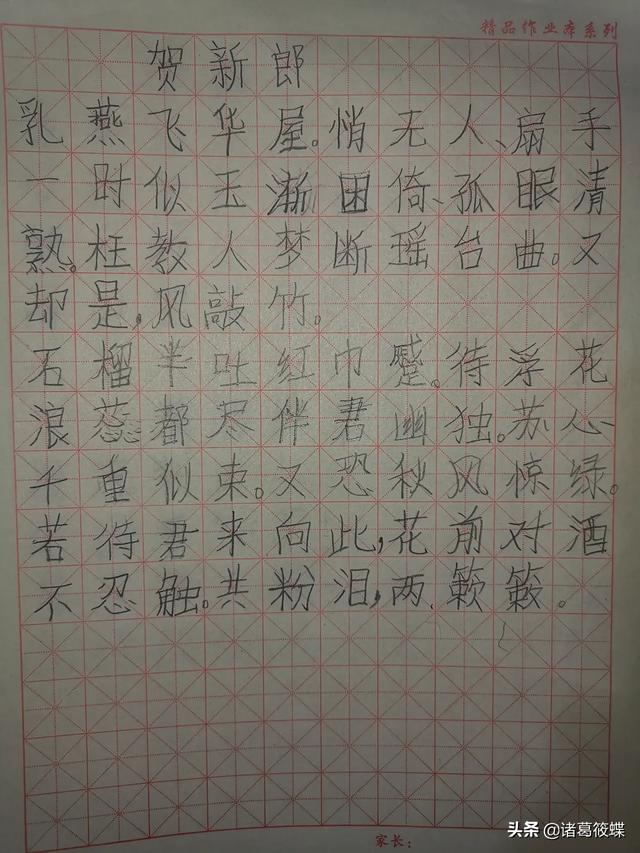 精品作业本系列
贺新郎
乳燕飞华屋。悄无人、扇手
一时似玉渐困倚、孤眠清
熟。枉教人梦断瑶台曲。又
却是，风敲竹。
石榴半吐红巾蹙。待浮花
浪蕊都尽伴君幽独。苏心
千重似束。又恐秋风惊绿。
若待君来向此，花前对酒
不忍触。共粉泪，两、簌簌。
家长：
头条 @诸葛筱蝶